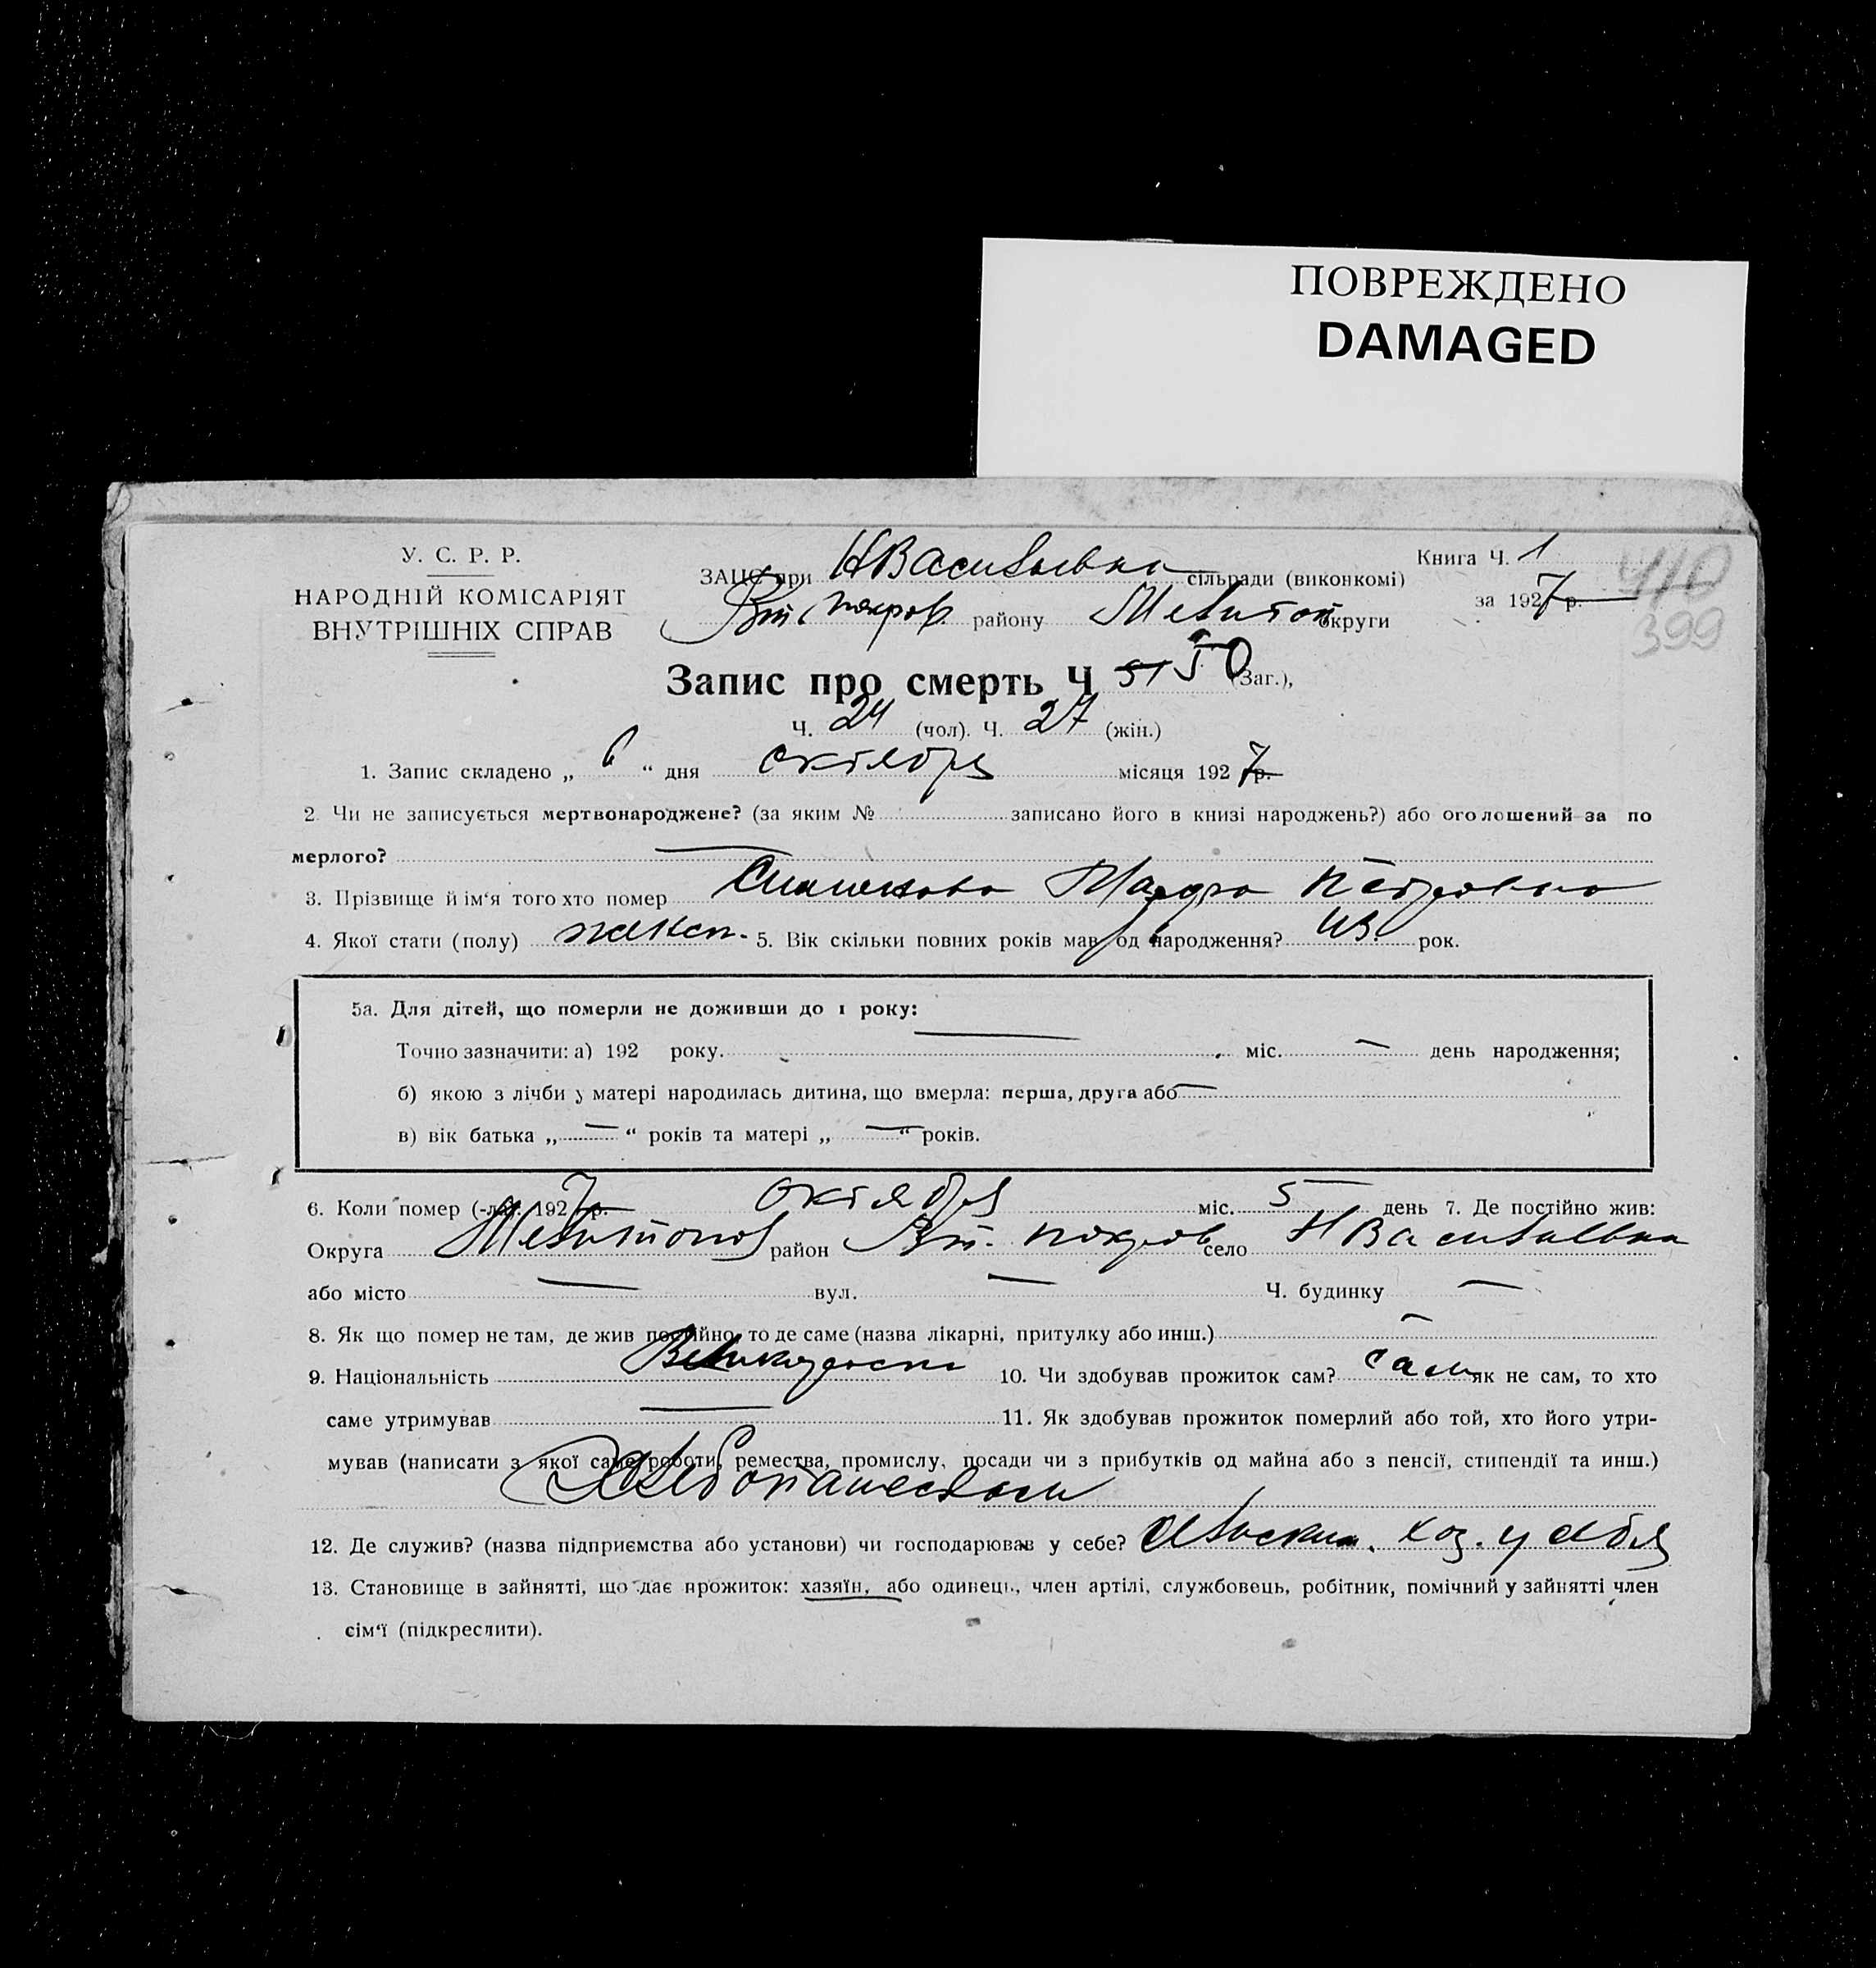 ПОВРЕЖДЕНО
DAMAGED
У. С. Р. Р.
НАРОДНІЙ КОМІСАРІЯТ
ВНУТРІШНІХ СПРАВ
ЗАЦС при НВасильевка сільради (виконкомі)
Вт. покров. району Мелитоп округи
Книга Ч. 1
за 1927 р.
410
399
Запис про смерть Ч 51 50 (Заг.),
Ч. 24 (чол). Ч. 27 (жін.)
1. Запис складено „ 6 “ дня октября місяця 1927 р.
2. Чи не записується мертвонароджене? (за яким № записано його в книзі народжень?) або оголошений за по
мерлого? —
3. Прізвище й ім‘я того хто помер Петровна
4. Якої стати (полу) женск. 5. Вік скільки повних років мав од народження? 43 рок.
5а. Для дітей, що померли не доживши до 1 року: —
Точно зазначити: а) 192 року. міс. — день народження;
б) якою з лічби у матері народилась дитина, що вмерла: перша, друга або —
в) вік батька „ — “ років та матері „ — “ років.
6. Коли помер (-ла). 1927 р. октября міс. 5 день 7. Де постійно жив:
Округа Мелитопол район Вт. покров село НВасильевка
або місто — вул. — Ч. будинку —
8. Як що помер не там, де жив постійно, то де саме (назва лікарні, притулку або инш.) —
9. Національність Великороска 10. Чи здобував прожиток сам? сам як не сам, то хто
саме утримував — 11. Як здобував прожиток померлий або той, хто його утри-
мував (написати з якої саме роботи, ремества, промислу, посади чи з прибутків од майна або з пенсії, стипендії та инш.)
Хлебопашеством
12. Де служив? (назва підприємства або установи) чи господарював у себе? сельским. хоз. у себя
13. Становище в зайнятті, що дає прожиток: хазяїн, або одинець, член артілі, службовець, робітник, помічний у зайнятті член
сім‘ї (підкреслити).